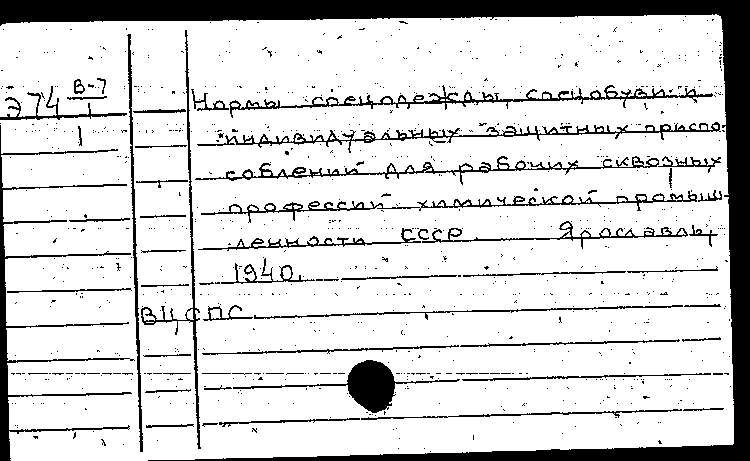 Э74 В-7
1
1
Нормы спецодежды, спецобуви и
индивидуальных защитных приспо-
соблений для рабочих сквозных
профессий химической промыш-
ленности СССР. Ярославль,
1940.
ВЦСПС.